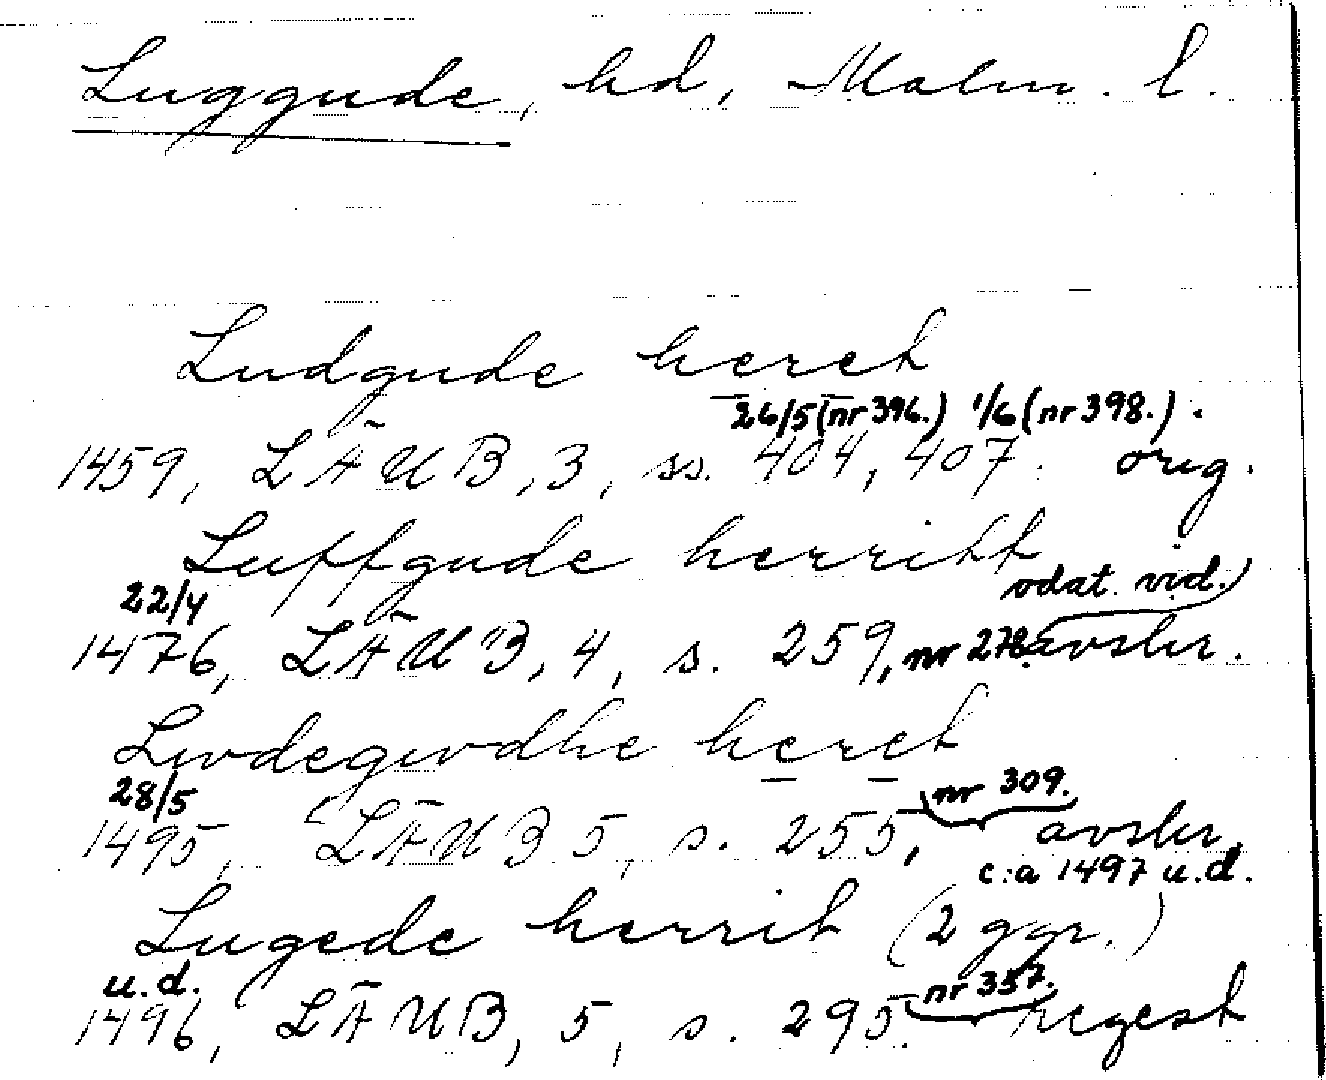 Luggude, hd, Malm. l.
Ludgude heret
26/5 (nr 396.) 1/6 (nr 398.).
1459, LÄUB, 3, ss. 404, 407. orig.
Luffgude herritt
22/4 odat. vid.
1476, LÄUB, 4, s. 259, nr 278. avskr.
Lwdegwdhe heret
28/5 nr 309.
1495, LÄUB 5, s. 255, avskr.
c:a 1497 u.d.
Lugede herrit (2 ggr.)
u.d. nr 357.
1496, LÄUB, 5, s. 295. regest